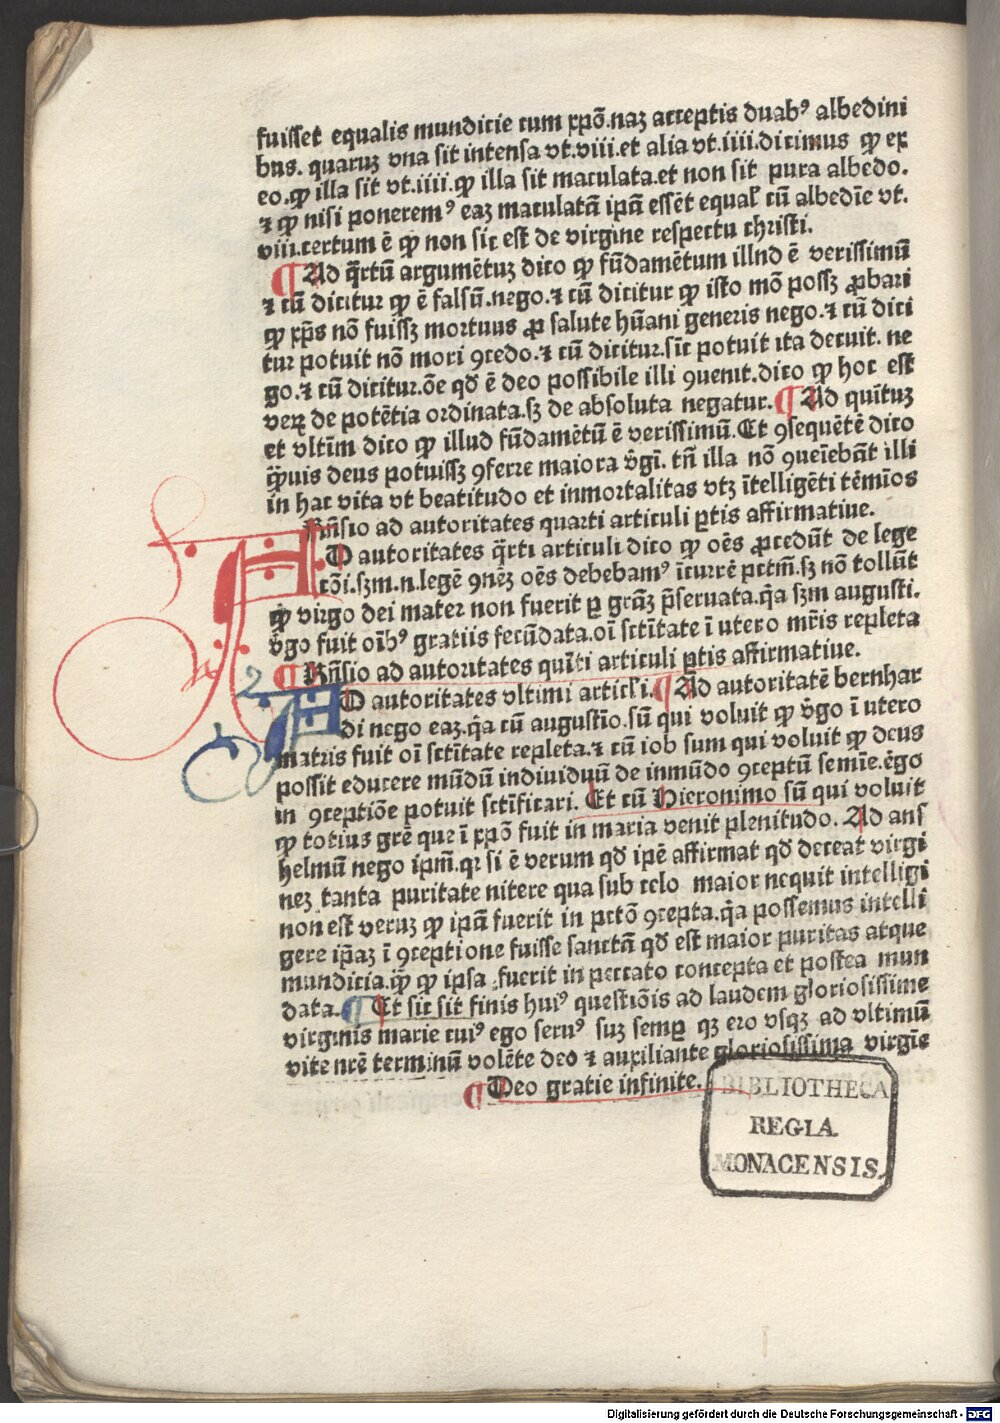 fuisset equalis mundicie cum xpõ.naʒ acceptis duabꝰ albedini
bus. quaruʒ vna sit intensa vt.viii.et alia vt.iiii.dicimus ꝙ ex
eo.ꝙ illa sit vt.iiii.ꝙ illa sit maculata.et non sit pura albedo.
⁊ ꝙ nisi poneremꝰ eaʒ maculatã ipã essẽt equal' cũ albedĩe vt.
viii.certum ẽ ꝙ non sic est de virgine respectu christi.
¶ Ad q̃rtũ argumẽtuʒ dico ꝙ fũdamẽtum illnd ẽ verissimũ
⁊ cũ dicitur ꝙ ẽ falsũ.nego.⁊ cũ dicitur ꝙ isto mõ possʒ ꝓbari
ꝙ xp̃s nõ fuissʒ mortuus ꝓ salute hũani generis nego.⁊ cũ dici
tur potuit nõ mori ꝯcedo.⁊ cũ dicitur.sĩc potuit ita decuit. ne
go.⁊ cũ dicitur.õe qď ẽ deo possibile illi ꝯuenit.dico ꝙ hoc est
verꝝ de potẽtia ordinata.sʒ de absoluta negatur. ¶ Ad quĩtuʒ
et vltĩm dico ꝙ illud fũdamẽtũ ẽ verissimũ.Et ꝯsequẽtẽ dico
ꝙ̃uis deus potuissʒ ꝯferre maiora v̉gĩ. tñ illa nõ ꝯueĩebãt illi
in hac vita vt beatitudo et inmortalitas vtʒ ĩtelligẽti tẽmĩos
Rñsio ad autoritates quarti articuli ꝑtis affirmatiue.
AD autoritates q̃rti articuli dico ꝙ oẽs ꝓcedũt de lege
cõi.sʒm.n.legẽ ꝯnẽʒ oẽs debebamꝰ ĩcurrẽ pctm̃.sʒ nõ tollũt
ꝙ̃ virgo dei mater non fuerit ꝑ grãʒ p̃seruata.q̃a sʒm augusti.
v̉go fuit oĩbꝰ gratiis fecũdata.oĩ sctĩtate ĩ utero mr̃is repleta
¶ Rñsio ad autoritates quĩti articuli ꝑtis affirmatiue.
2
AD autoritates vltimi articl'i. ¶ Ad autoritatẽ bernhar
di nego eaʒ.q̃a cũ augustĩo.sũ qui voluit ꝙ v̉go ĩ utero
matris fuit oĩ sctĩtate repleta.⁊ cũ iob sum qui voluit ꝙ deus
possit educere mũdũ indiuiduũ de inmũdo ꝯceptũ semĩe.ẽgo
in ꝯceptiõe potuit sctĩficari. Et cũ Hieronimo sũ qui voluit
ꝙ totius grẽ que ĩ xpõ fuit in maria venit plenitudo. Ad ans
helmũ nego ipm̃.qꝛ si ẽ verum qď ipẽ affirmat qď deceat virgi
neʒ tanta puritate nitere qua sub celo maior nequit intelligi
non est veruʒ ꝙ ipã fuerit in pctõ ꝯcepta.q̃a possemus intelli
gere ip̃aʒ ĩ ꝯceptione fuisse sanctã qď est maior puritas atque
mundicia.ꝙ̃ ꝙ ipsa fuerit in peccato concepta et postea mun
data. ¶ Et sic sit finis huiꝰ questiõis ad laudem gloriosissime
virginis marie cuiꝰ ego seruꝰ suʒ semꝑ qʒ ero vsqʒ ad vltimũ
vite nrẽ terminũ volẽte deo ⁊ auxiliante gloriosissima virgĩe
¶ Deo gratie infinite.
BIBLIOTHECA
REGIA
MONACENSIS.
Digitalisierung gefördert durch die Deutsche Forschungsgemeinschaft - DFG